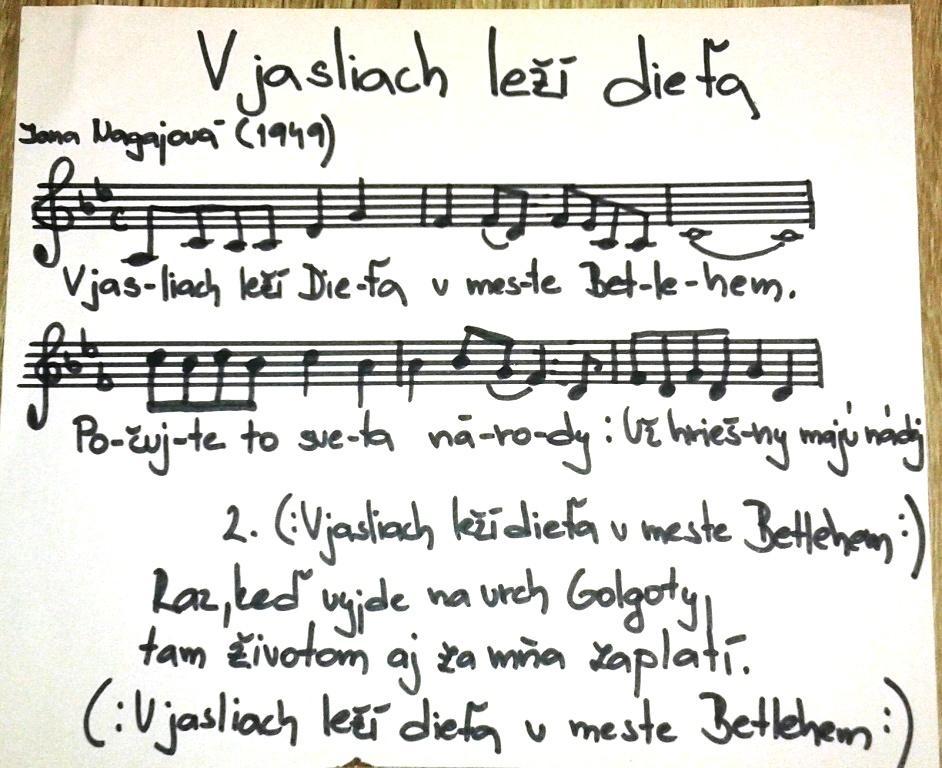 V jasliach leží dieťa
Jana Nagajová (1949)
V jas-liach leží Die-ťa v mes-te Bet-le-hem.
Po-čuj-te to sve-ta ná-ro-dy: Už hrieš-ny majú nádj
2. (: V jasliach leží dieťa v meste Betlehem :)
Raz, keď vyjde na vrch Golgoty,
tam životom aj za mňa zaplatí.
(: V jasliach leží dieťa v meste Betlehem :)